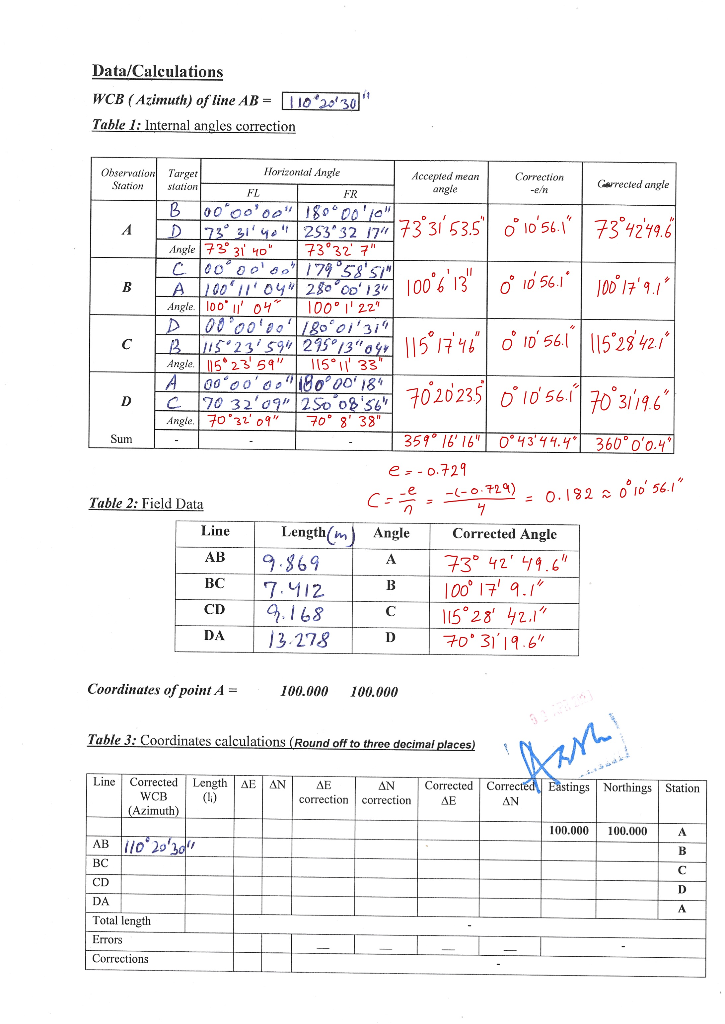 Data/Calculations
WCB ( Azimuth) of line AB = 110°20'30"
Table 1: Internal angles correction
Observation Station Target station Horizontal Angle Accepted mean angle Correction -e/n Corrected angle
FL FR
A B 00°00'00" 180°00'10" 73°31'53.5" 0°10'56.1" 73°42'49.6"
D 73°31'40" 253°32'17"
Angle 73°31'40" 73°32'7"
B C 00°00'00" 179°58'51" 100°6'13" 0°10'56.1" 100°17'9.1"
A 100°11'04" 280°00'13"
Angle. 100°11'04" 100°1'22"
C D 00°00'00' 180°01'31" 115°17'46" 0°10'56.1" 115°28'42.1"
B 115°23'59" 295°13"04"
Angle. 115°23'59" 115°11'33"
D A 00°00'00" 180°00'18" 70°20'23.5 0°10'56.1" 70°31'19.6"
C 70 32'09" 250°08'56"
Angle. 70°32'09" 70°8'38"
Sum - - - 359°16'16" 0°43'44.4" 360°0'0.4"
e = -0.729
C = -e/n = -(-0.729)/4 = 0.182 ≈ 0°10'56.1"
Table 2: Field Data
Line Length(m) Angle Corrected Angle
AB 9.869 A 73°42'49.6"
BC 7.412 B 100°17'9.1"
CD 9.168 C 115°28'42.1"
DA 13.278 D 70°31'19.6"
Coordinates of point A = 100.000 100.000
Table 3: Coordinates calculations (Round off to three decimal places)
Line Corrected WCB (Azimuth) Length (lᵢ) ΔE ΔN ΔE correction ΔN correction Corrected ΔE Corrected ΔN Eastings Northings Station
100.000 100.000 A
AB 110°20'30" B
BC C
CD D
DA A
Total length -
Errors — — — — -
Corrections -